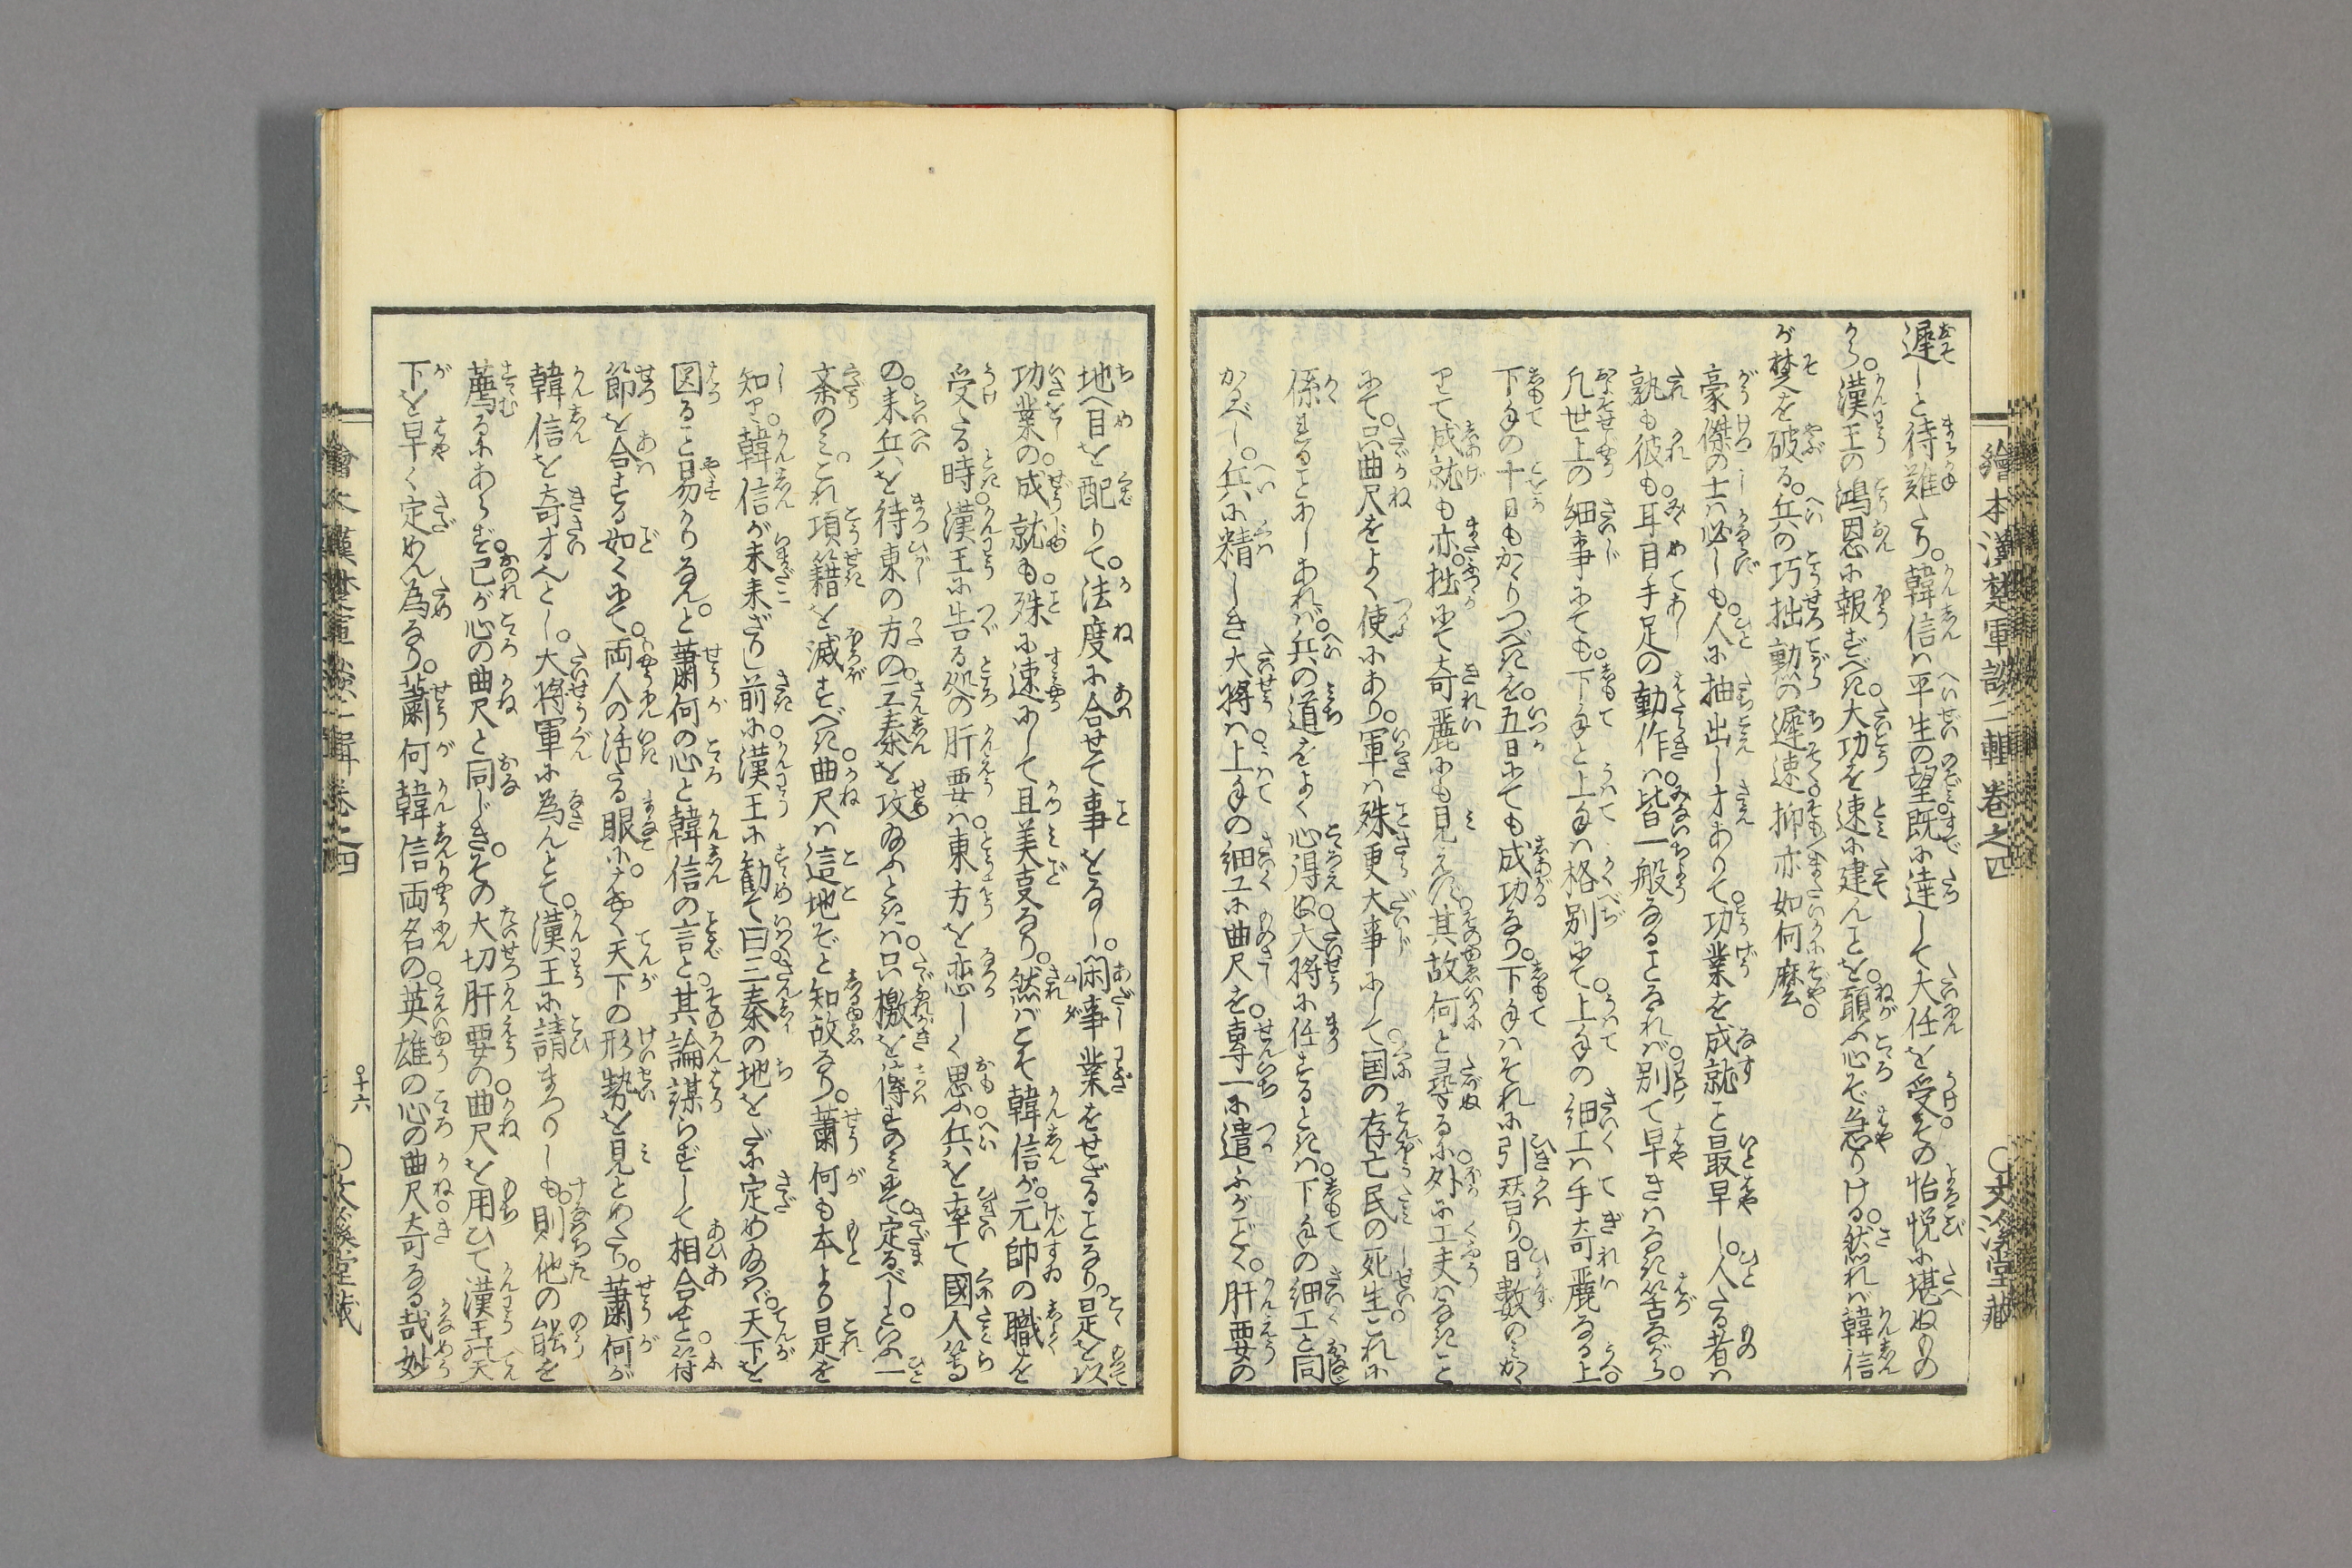 繪本漢楚軍談二輯卷之四
○文溪堂藏
遲しと待難たり。韓信ハ平生の望既に達して大任を受。その怡悦に堪ぬもの
から。漢王の鴻恩に報ずべき。大功を速に建んことを。願ふ心ぞ急りける。然れバ韓信
が楚を破る。兵の巧拙勲の遲速抑亦如何麼。
豪傑の士ハ必しも。人に抽出し才ありて。功業を成就こと最早し。人たる者ハ
孰も彼も。耳目手足の動作ハ。皆一般なることなれバ。別て早きハなき筈ながら。
凡世上の細事にても。下手と上手ハ格別にて。上手の細工ハ手奇麗なる上。
下手の十日もかゝりつべきを。五日にても成功なり。下手ハそれに引替り。日數のミかゝ
りて成就も亦。拙にて奇麗にも見えず。其故何と尋るに。外に工夫ハなきこと
にて。只曲尺をよく使にあり。軍ハ殊更大事にして。国の存亡民の死生。これに
係ることわしあれバ。兵の道をよく心得ぬ。大將に任するときハ。下手の細工と同じ
かるべし。兵に精しき大將ハ。上手の細工に曲尺を。專一に遣ふがごとく。肝要の
地へ目を配りて。法度に合せて事をなし。閑事業をせざることなり。是を以
功業の。成就も。殊に速にして且美麦なり。然バこそ韓信が。元帥の職を
受たる時。漢王に告る処の肝要ハ。東方を恋しく思ふ。兵を率て國人等
の。来兵を待東の方の。三秦を攻給ふときハ。只檄を傳るのミにて。定るべしといふ一
条のミ。これ項籍を滅すべき。曲尺ハ這地ぞと知故なり。蕭何も本より是を
知りて。韓信が未来ざりし前に。漢王に勧て曰。三秦の地をだに定め給ハバ。天下を
図ること易かりなん。と蕭何の心と韓信の言と。其論謀らずして相合こと。符
節を合する如くにて。両人の活たる眼に。はやく天下の形勢を見とめたり。蕭何が
韓信を奇才とし。大將軍に為んとて。漢王に請まつりしも。則他の能を
薦るにあらず。己が心の曲尺と同じき。その大切肝要の。曲尺を用ひて漢王の天
下を早く定めん為なり。蕭何韓信両名の。英雄の心の曲尺。奇なる哉妙
○十六